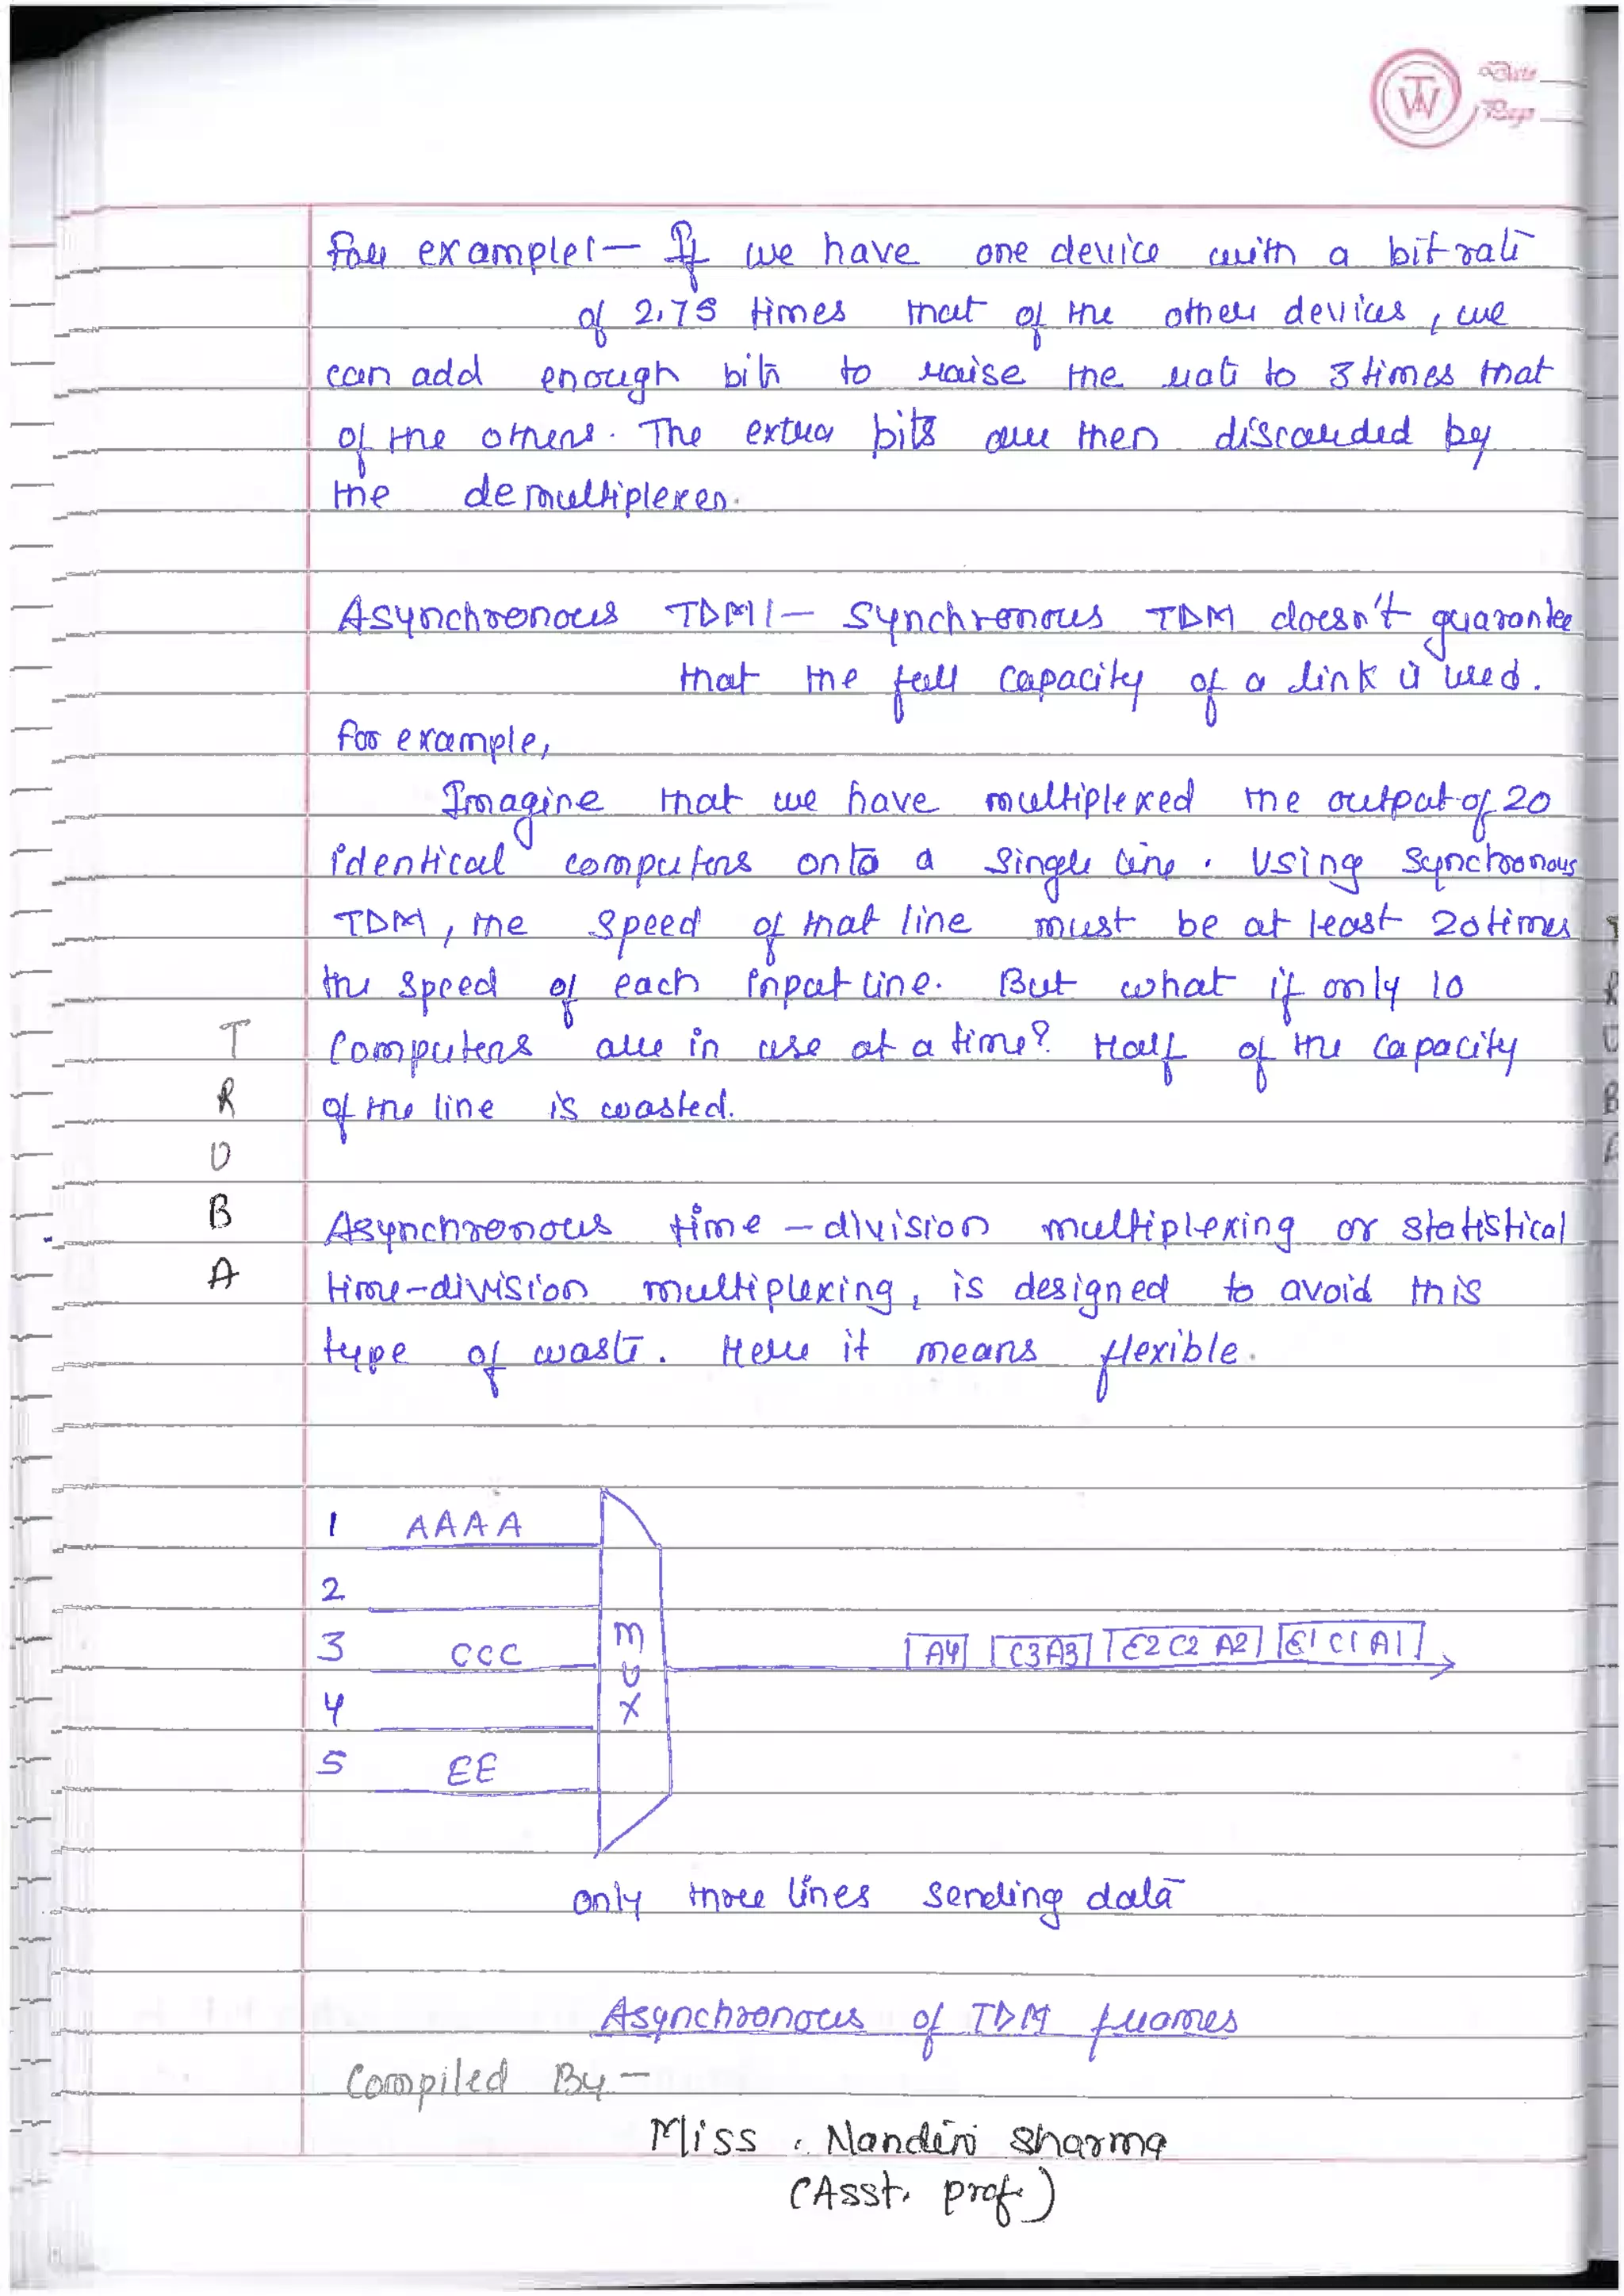 Date
Page
For example:- If we have one device with a bit rate
of 2.75 times that of the other devices, we
can add enough bits to raise the rate to 3 times that
of the others. The extra bits are then discarded by
the demultiplexer.
Asynchronous TDM:- Synchronous TDM doesn't guarantee
that the full capacity of a link is used.
For example,
Imagine that we have multiplexed the output of 20
identical computers onto a single line. Using Synchronous
TDM, the speed of that line must be at least 20 times
the speed of each input line. But what if only 10
Computers are in use at a time? Half of the capacity
of the line is wasted.
Asynchronous time-division multiplexing or statistical
time-division multiplexing, is designed to avoid this
type of waste. Here it means flexible.
T
R
U
B
A
1 AAAA
2
3 CCC
4
5 EE
MUX
A4 C3A3 E2 C2 A2 E1 C1 A1
only three lines sending data
Asynchronous of TDM frames
Compiled By-
Miss. Nandini Sharma
(Asst. prof.)